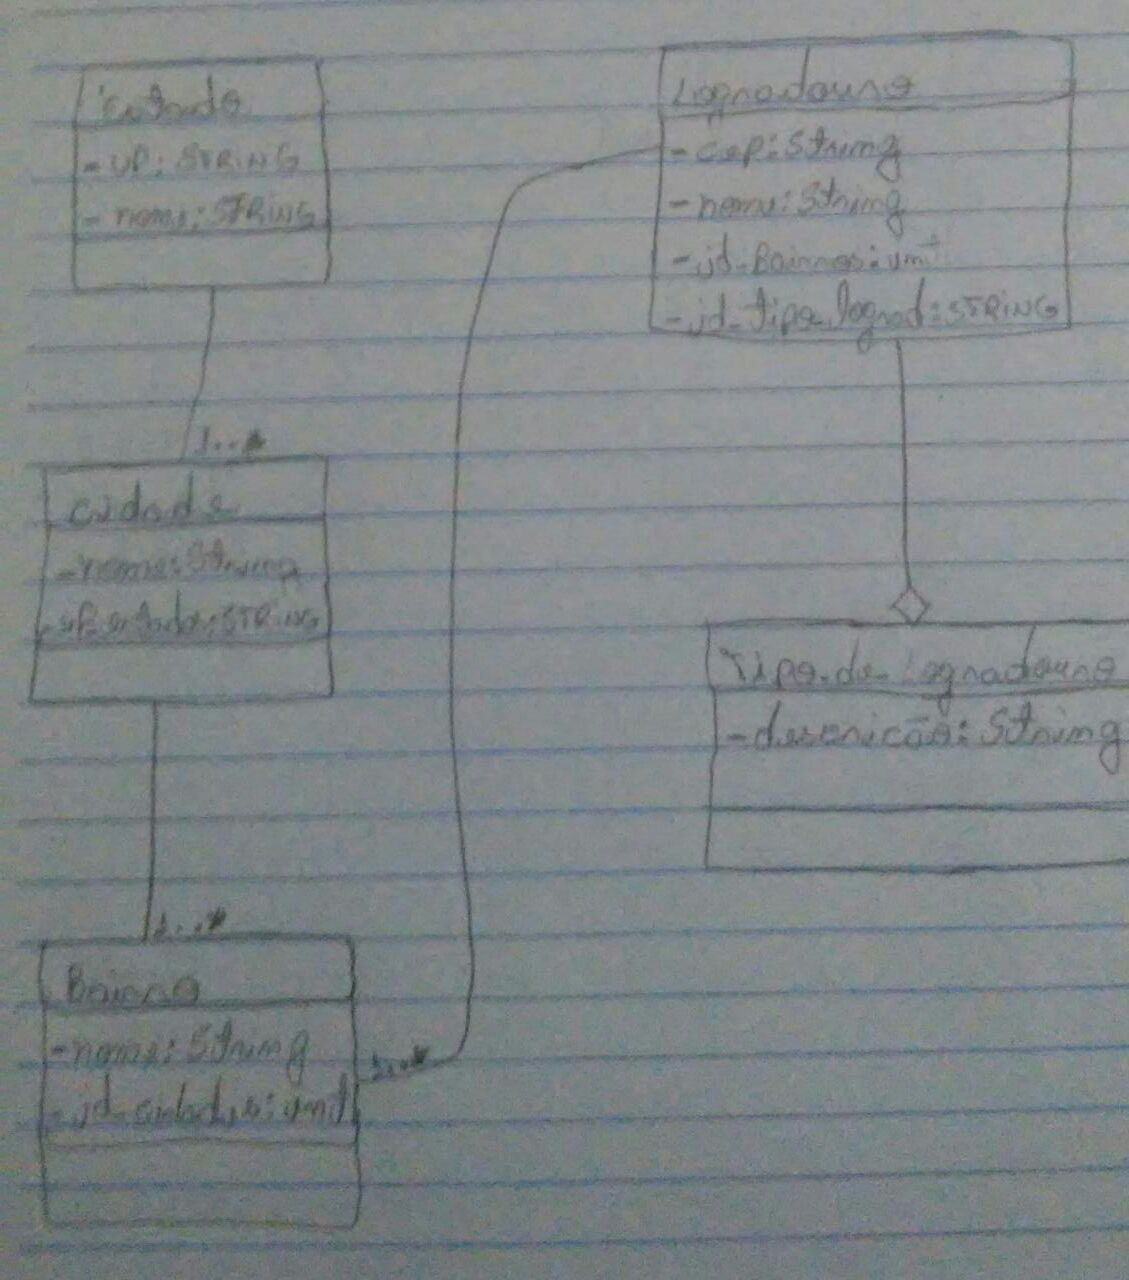 Estado
- UF: STRING
- nome: STRING
1..*
Cidade
- nome: String
- uf_estado: STRING
1..*
Bairro
- nome: String
- id_cidades: int
1..*
Logradouro
- cep: String
- nome: String
- id_Bairros: int
- id_tipo_lograd: STRING
Tipo_de_Logradouro
- descrição: String